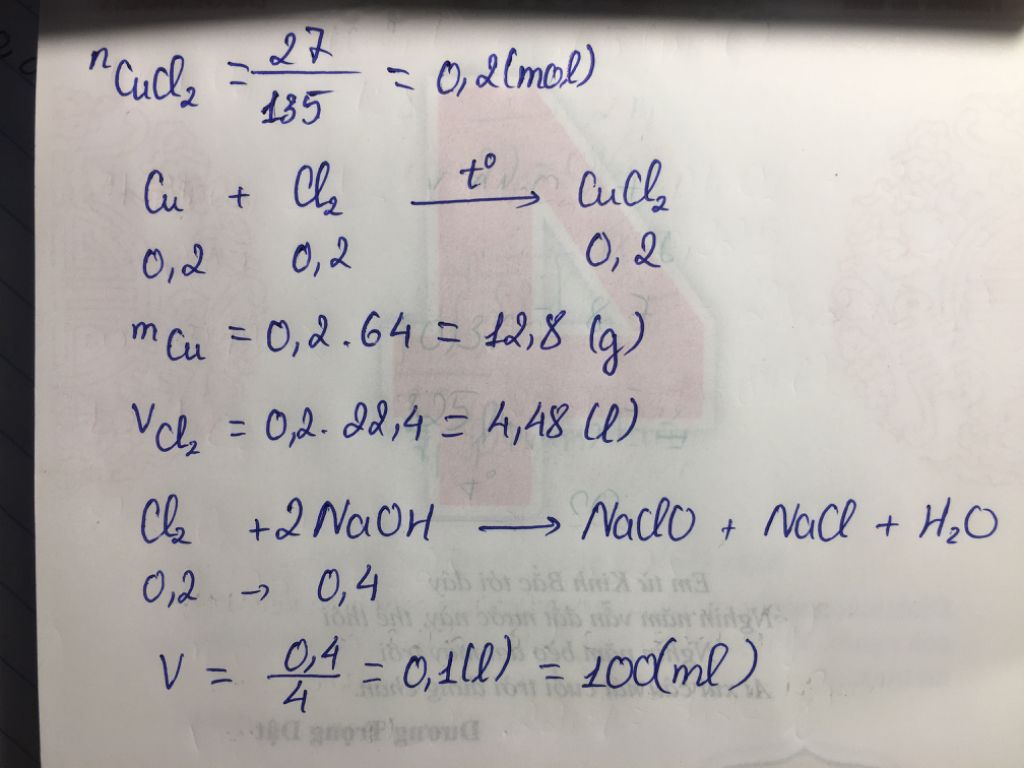 nCuCl₂ = 27/135 = 0,2(mol)
Cu + Cl₂ —t°→ CuCl₂
0,2 0,2 0,2
mCu = 0,2.64 = 12,8 (g)
VCl₂ = 0,2.22,4 = 4,48 (l)
Cl₂ +2NaOH → NaClO + NaCl + H₂O
0,2 → 0,4
V = 0,4/4 = 0,1(l) = 100(ml)
Em từ Kinh Bắc tới đây
Nghìn năm vẫn đất nước này, thế thôi
Dương Trọng Dật